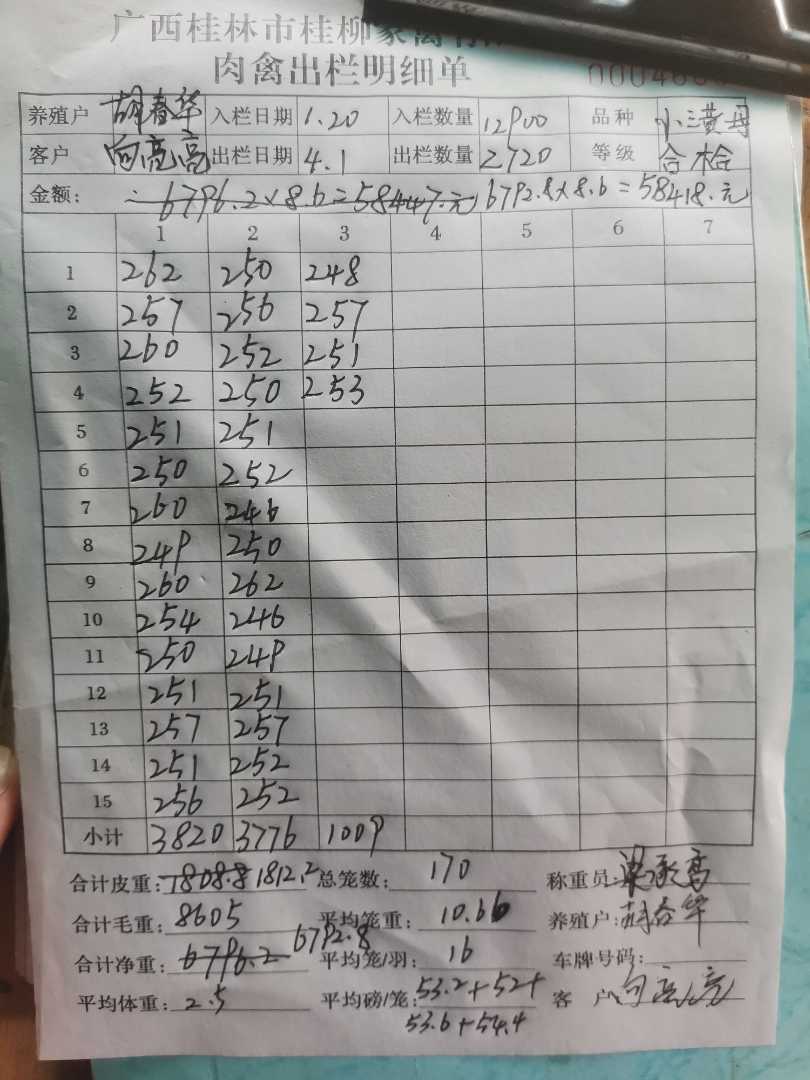 广西桂林市桂柳家禽有
肉禽出栏明细单
养殖户 胡春华 入栏日期 1.20 入栏数量 12900 品种 小三黄母
客户 向亮亮 出栏日期 4.1 出栏数量 2720 等级 合格
金额： 6796.2×8.6=58447.元 6792.8×8.6=58418.元
1 2 3 4 5 6 7
1 262 250 248
2 257 256 257
3 260 252 251
4 252 250 253
5 251 251
6 250 252
7 260 246
8 249 250
9 260 262
10 254 246
11 250 249
12 251 251
13 257 257
14 251 252
15 256 252
小计 3820 3776 1009
合计皮重: 1808.8 1812.2 总笼数: 170 称重员:
合计毛重: 8605 平均笼重: 10.66 养殖户: 胡春华
合计净重: 6796.2 6792.8 平均笼/羽: 16 车牌号码:
平均体重: 2.5 平均磅/笼: 53.2+52+ 客 户 向亮亮
53.6+54.4